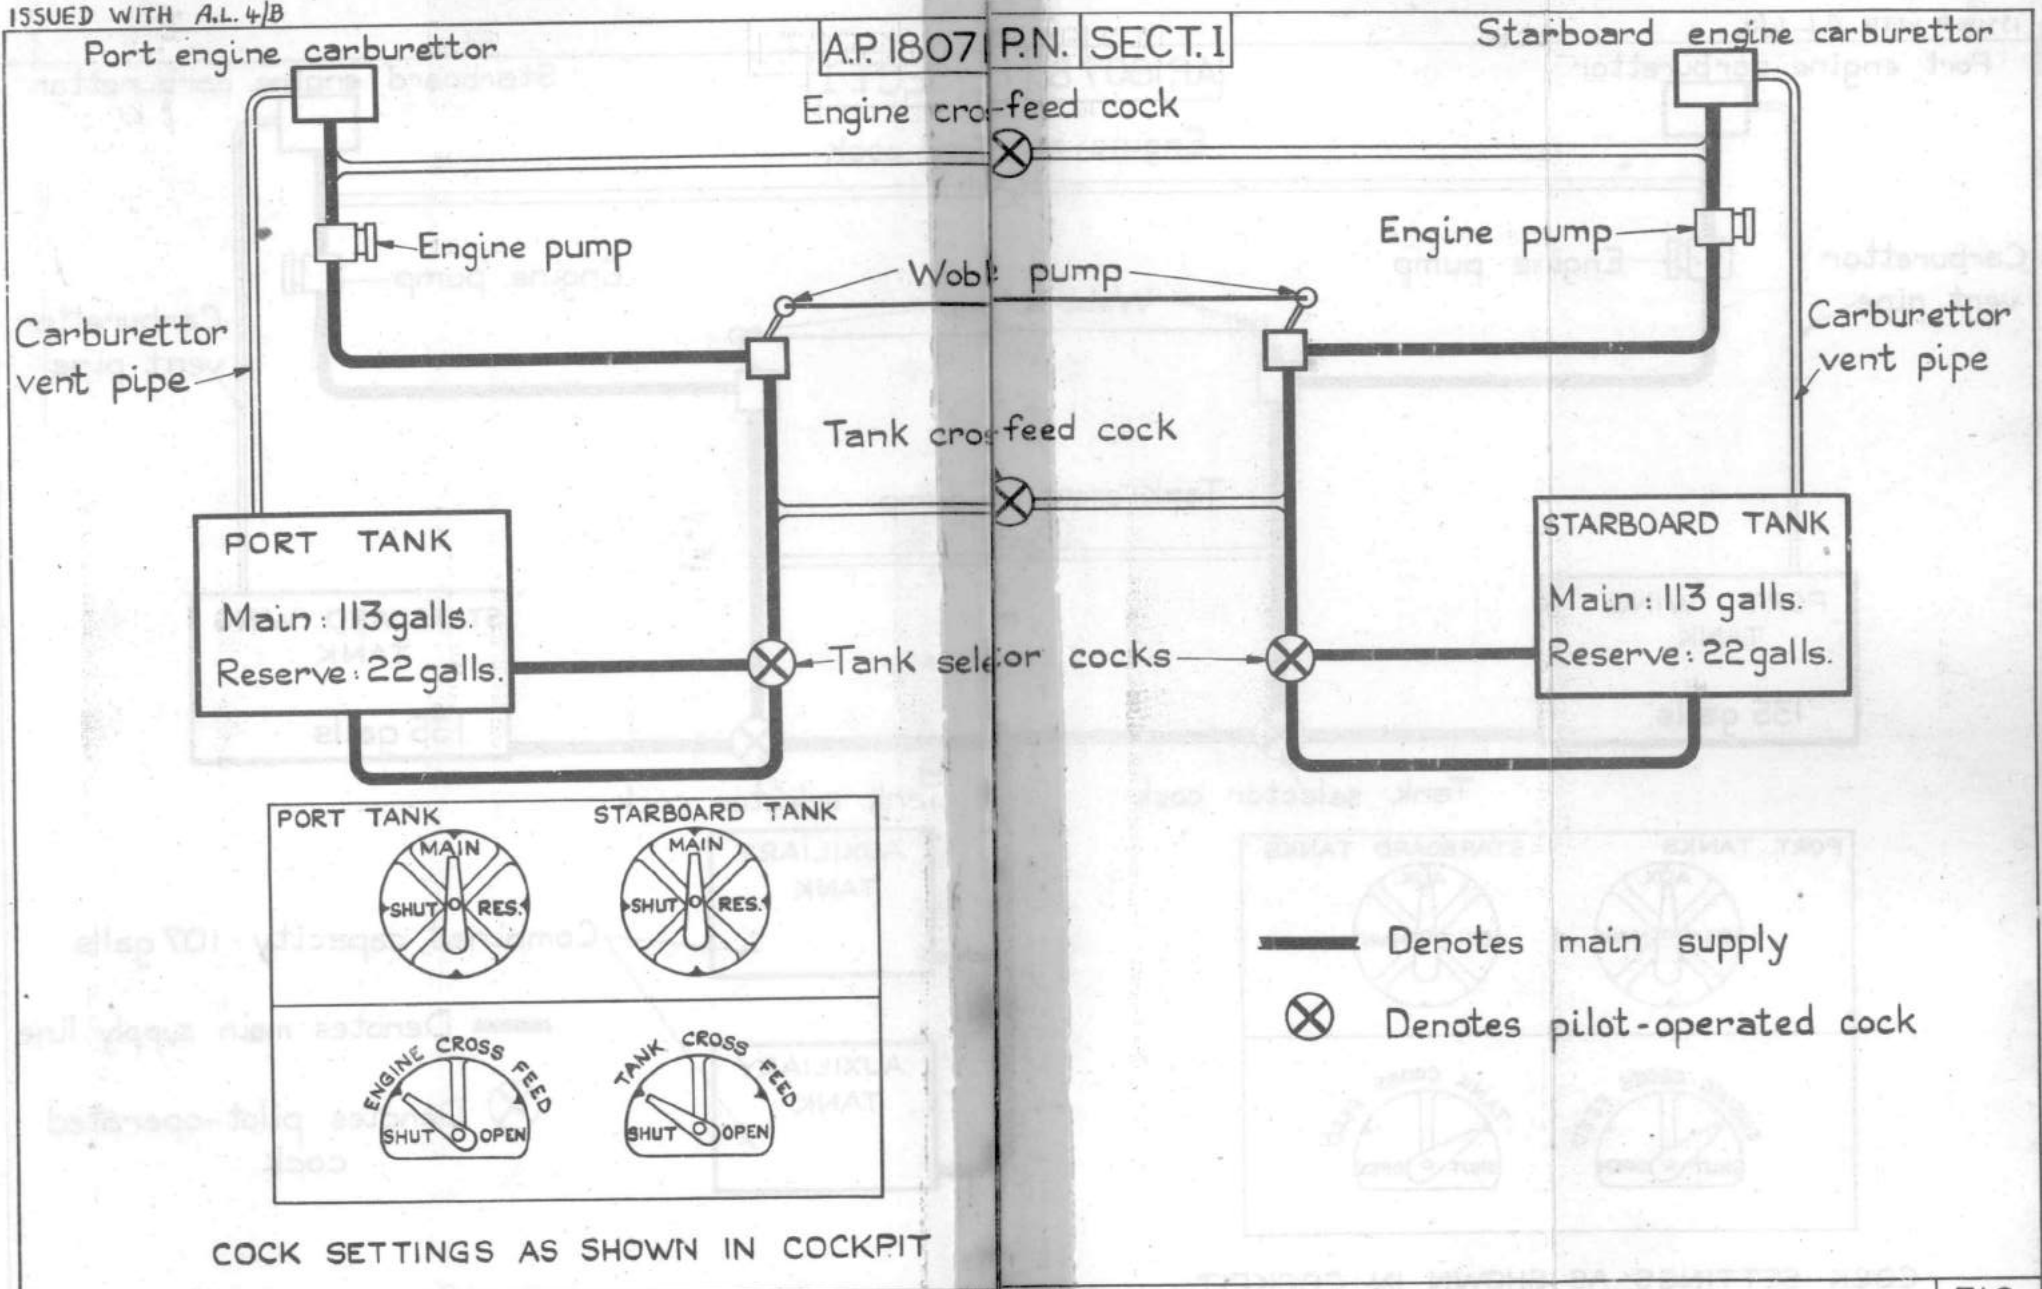 ISSUED WITH A.L. 4/B
A.P. 1807 P.N. SECT. 1
Port engine carburettor
Starboard engine carburettor
Engine cro-feed cock
Engine pump
Engine pump
Wobl pump
Carburettor
vent pipe
Carburettor
vent pipe
Tank cros-feed cock
PORT TANK
Main : 113 galls.
Reserve : 22 galls.
STARBOARD TANK
Main : 113 galls.
Reserve : 22 galls.
Tank selector cocks
PORT TANK
MAIN
SHUT RES.
STARBOARD TANK
MAIN
SHUT RES.
ENGINE CROSS FEED
SHUT OPEN
TANK CROSS FEED
SHUT OPEN
Denotes main supply
Denotes pilot-operated cock
COCK SETTINGS AS SHOWN IN COCKPIT